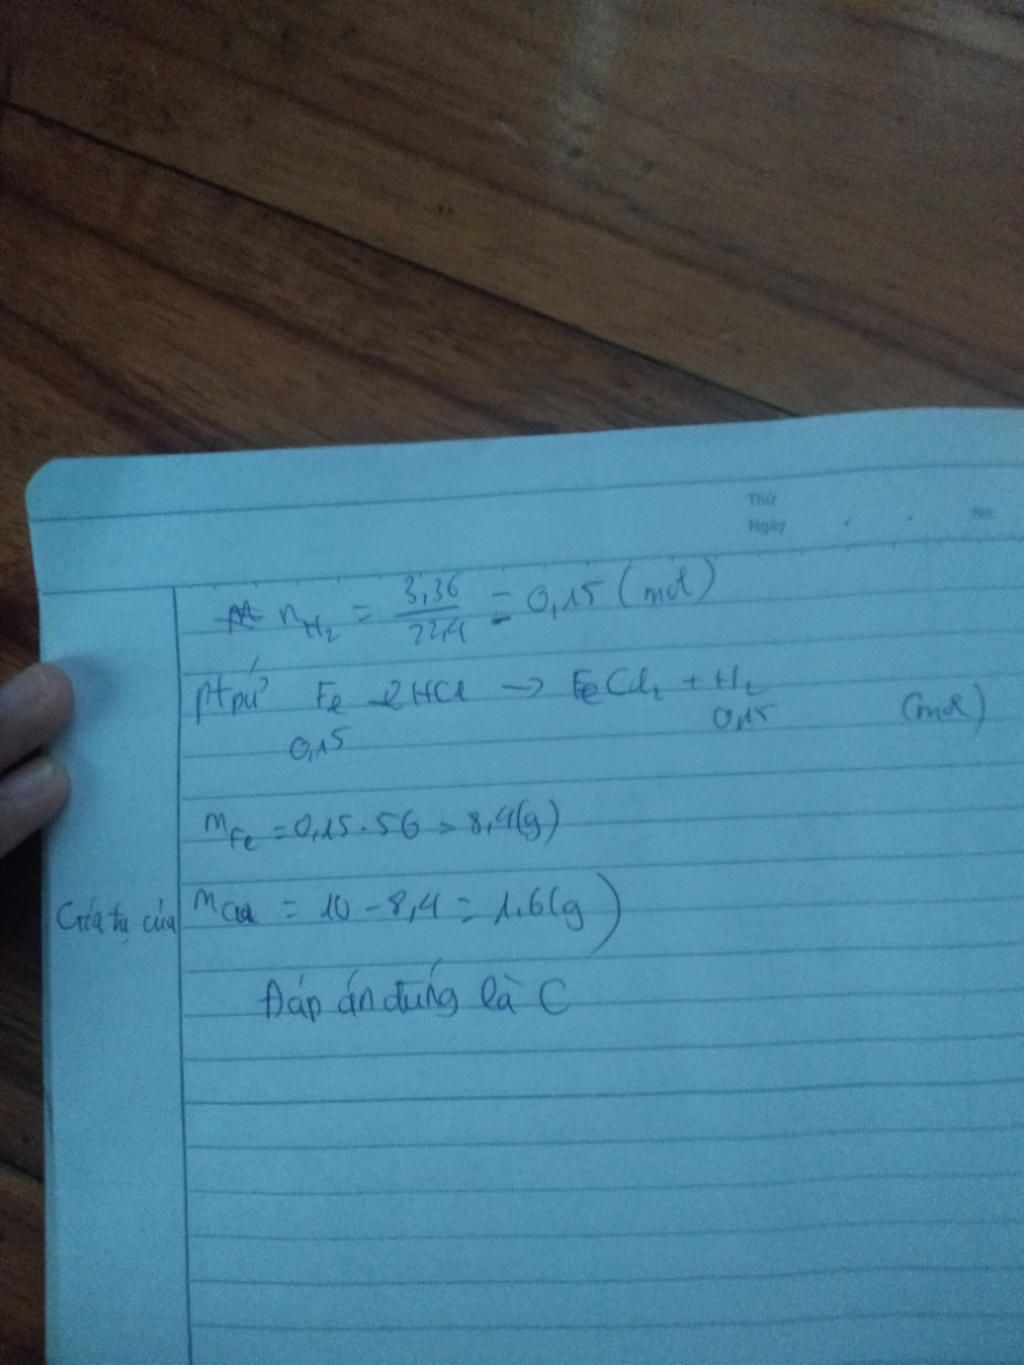 Thứ
Ngày . . No.
n_H₂ = 3,36/22,4 = 0,15 (mol)
Ptpứ Fe + 2HCl → FeCl₂ + H₂
0,15 0,15 (mol)
m_Fe = 0,15 . 56 = 8,4(g)
Giá trị của m_Cu = 10 - 8,4 = 1,6(g)
Đáp án đúng là C